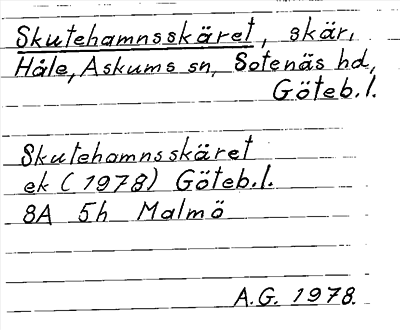 Skutehamnsskäret, skär,
Håle, Askums sn, Sotenäs hd,
Göteb.l.
Skutehamnsskäret
ek (1978) Göteb.l.
8A 5h Malmö
A.G. 1978.